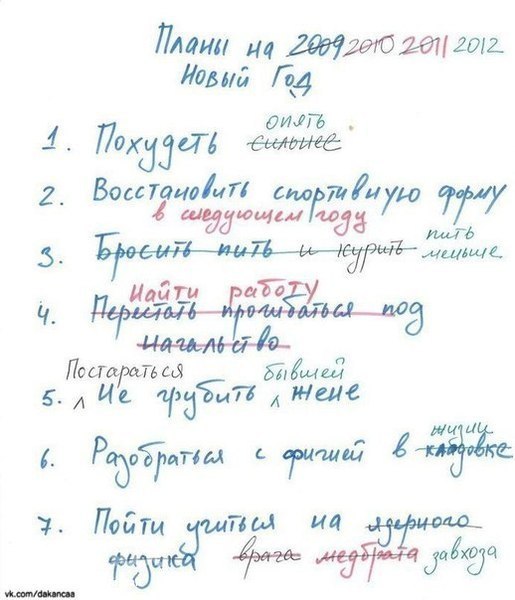 Планы на 2009 2010 2011 2012
Новый Год
опять
1. Похудеть сильнее
2. Восстановить спортивную форму
в следующем году
пить
3. Бросить пить и курить меньше
Найти работу
4. Перестать прогибаться под
начальство
Постараться бывшей
5. Не грубить жене
жизни
6. Разобраться с фигнёй в кладовке
7. Пойти учиться на ядерного
физика врача медбрата завхоза
vk.com/dakancaa